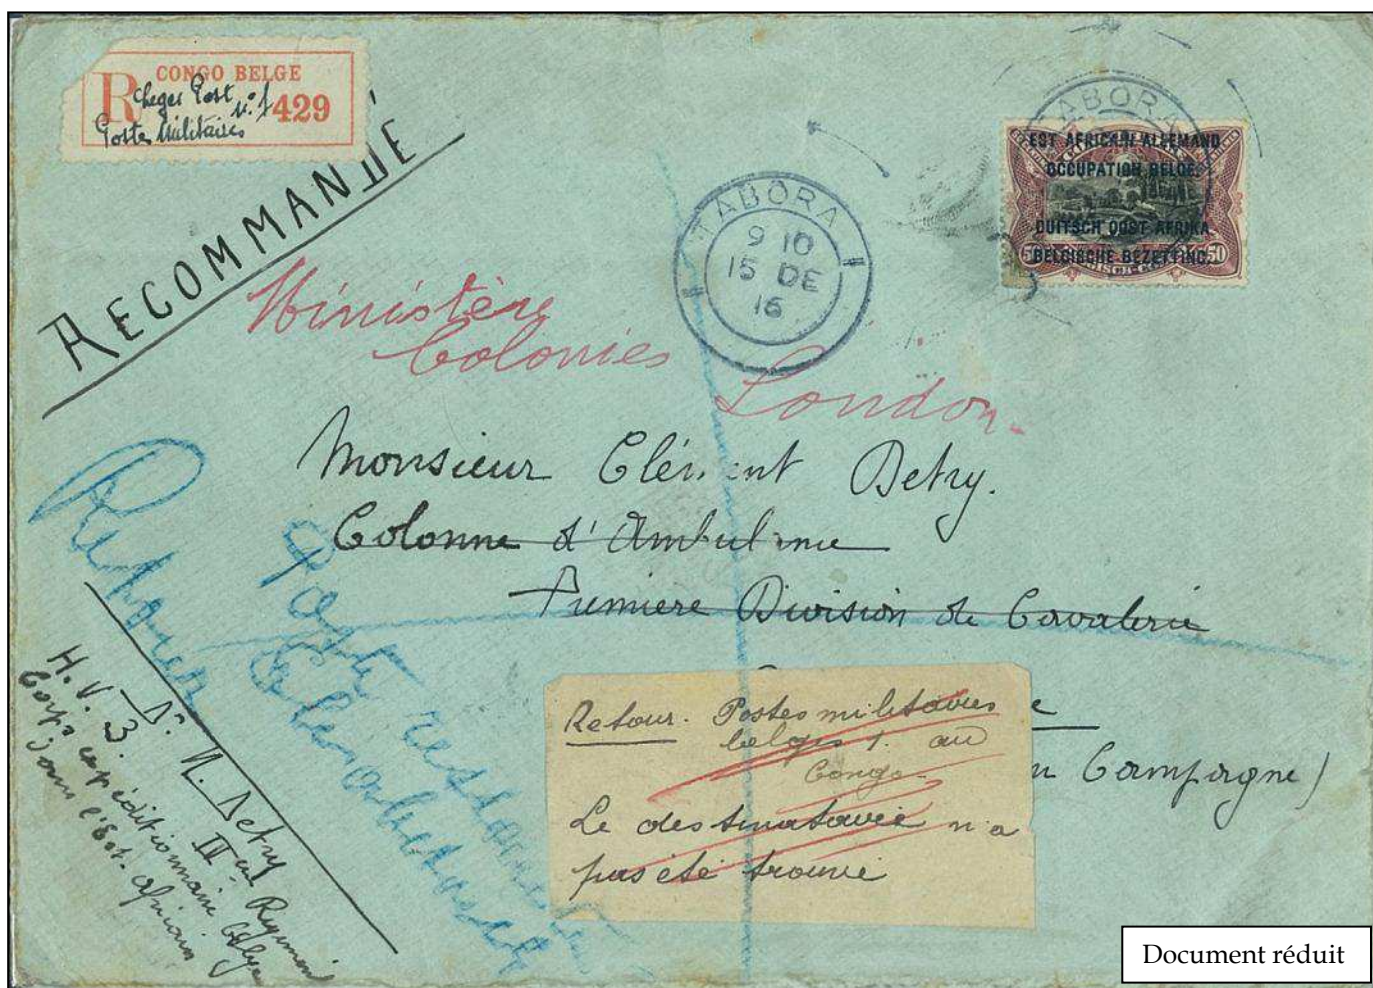 CONGO BELGE
R 429
Leger Post
Postes Militaires N° 1
RECOMMANDÉ
TABORA
9 10
15 DE
16
TABORA
EST AFRICAIN ALLEMAND
OCCUPATION BELGE.
DUITSCH OOST AFRIKA
BELGISCHE BEZETTING.
50
Ministère
Colonies London
Monsieur Clément Detry.
Colonne d'Ambulance
Première Division de Cavalerie
en Campagne)
Retour. Postes militaires
belges 1. au
Congo
Le destinataire n'a
pas été trouvé
Retour
Poste restante
Elisabethville
Dr. N. Detry
H. V. 3. IIème Régiment
Corps expéditionnaire belge
dans l'Est. africain
Document réduit